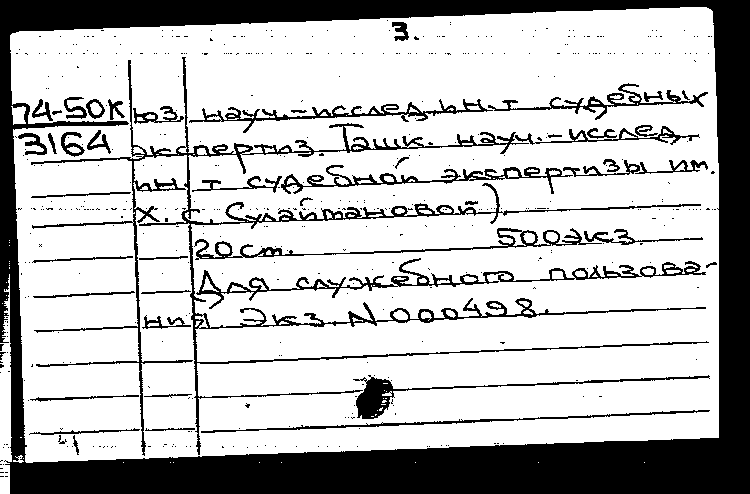 3.
74-50к юз. науч.-исслед. ин-т судебных
3164 экспертиз. Ташк. науч.-исслед.
ин-т судебной экспертизы им.
Х. С. Сулаймановой).
20 см. 500 экз.
Для служебного пользова-
ния Экз. N 000498.